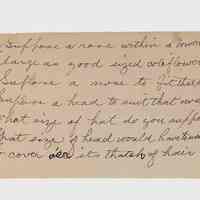 Suppose a rose within a mon
large as good sized coleflower
Suplose a nose to fit that
Suplose a head to suit that nose
What size of hat do you suppo
that size of head would have
to cover oer its thatch of hair